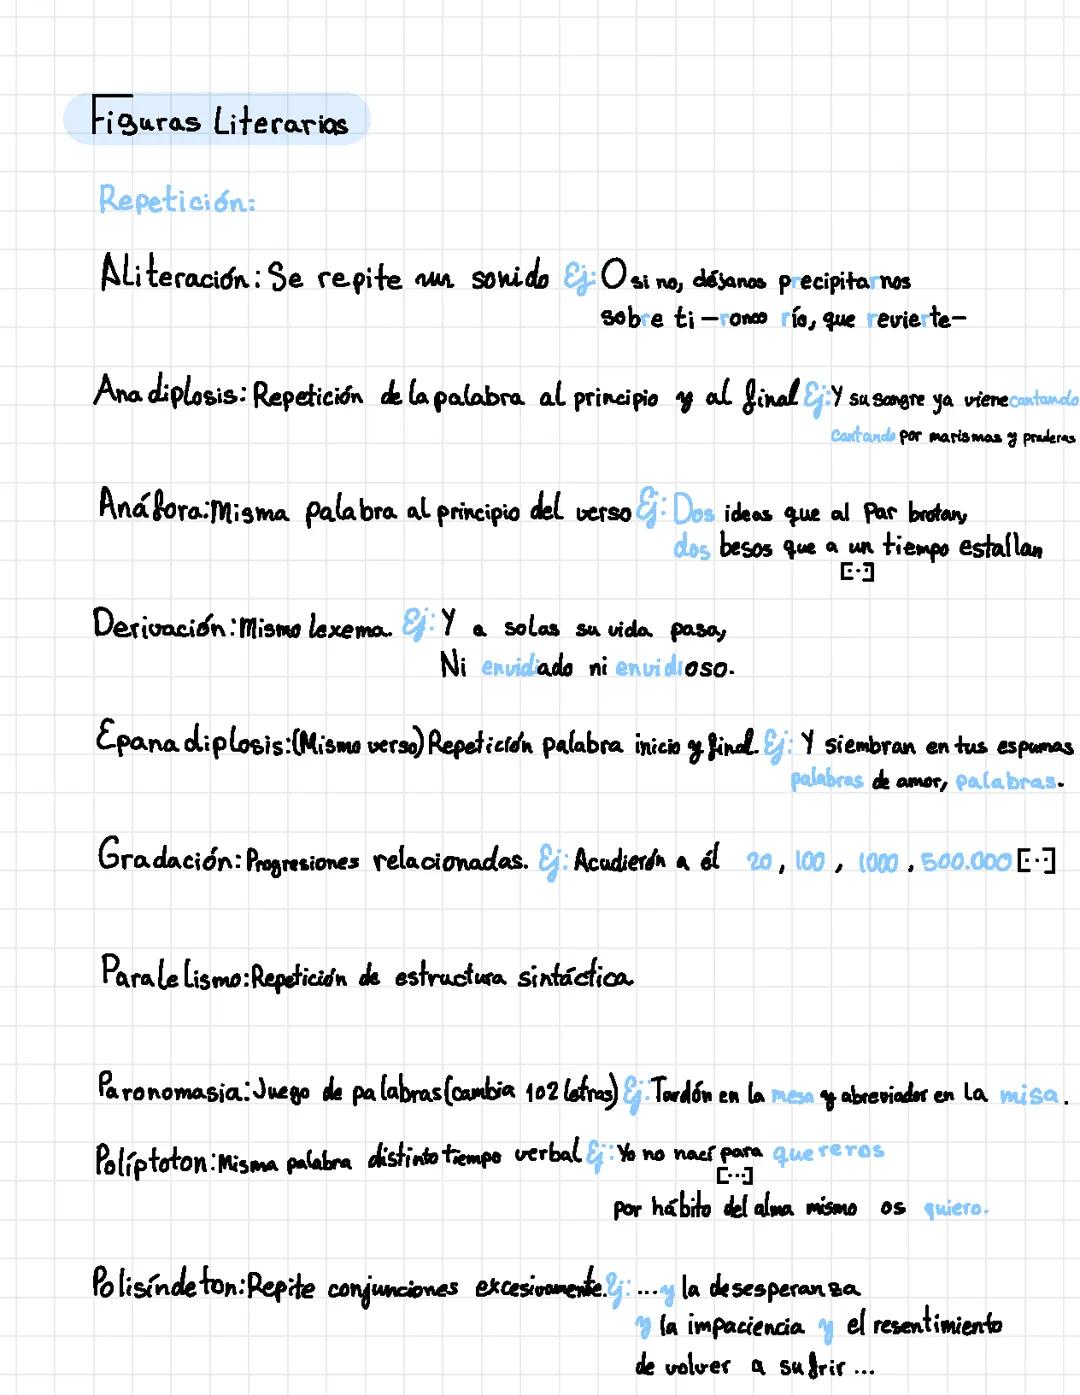 Figuras Literarias
Repetición:
Aliteración: Se repite un sonido Ej: O si no, déjanos precipitarnos
sobre ti -ronco río, que revierte-
Anadiplosis: Repetición de la palabra al principio y al final Ej: Y su sangre ya viene cantando
cantando por marismas y praderas
Anáfora: Misma palabra al principio del verso Ej: Dos ideas que al par brotan,
dos besos que a un tiempo estallan
[...]
Derivación: Mismo lexema. Ej: Y a solas su vida pasa,
Ni envidiado ni envidioso.
Epanadiplosis: (Mismo verso) Repetición palabra inicio y final. Ej: Y siembran en tus espumas
palabras de amor, palabras.
Gradación: Progresiones relacionadas. Ej: Acudierón a él 20, 100, 1000, 500.000 [...]
Paralelismo: Repetición de estructura sintáctica
Paronomasia: Juego de palabras (cambia 1 o 2 letras) Ej: Tardón en la mesa y abreviador en la misa.
Políptoton: Misma palabra distinto tiempo verbal Ej: Yo no nací para quereros
[...]
por hábito del alma mismo os quiero.
Polisíndeton: Repite conjunciones excesivamente. Ej: ...y la desesperanza
y la impaciencia y el resentimiento
de volver a sufrir...